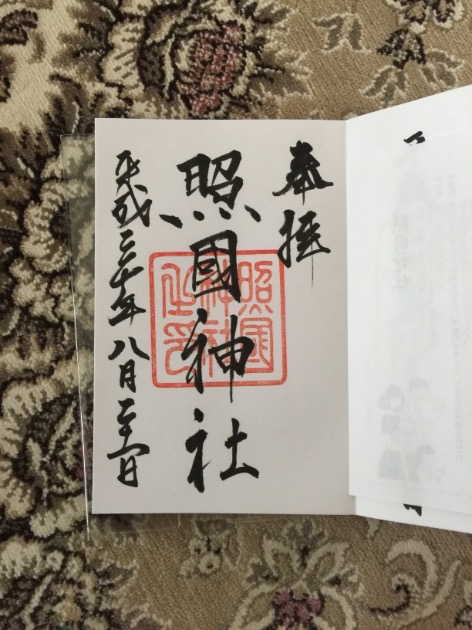 奉拝
照國神社
平成三十年八月二十一日
照國
神社
之印